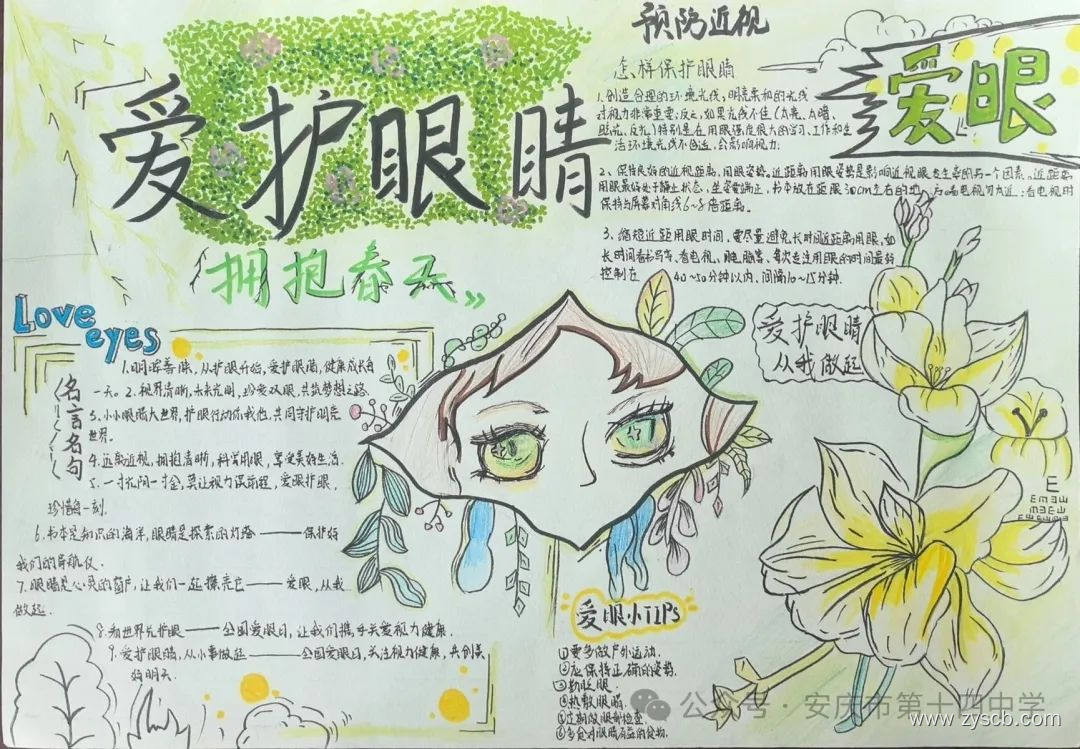 爱护眼睛
拥抱春天
预防近视
怎样保护眼睛
1.创造合理的环境光线,明亮柔和的光线
对视力非常重要;反之,如果光线不佳(太亮、太暗、
眩光、反光)特别是在用眼强度很大的学习、工作和生
活环境光线不合适,会影响视力;
2、保持良好的近视距离,用眼姿势。近距离用眼姿势是影响近视眼发生率的另一个因素。近距离
用眼最好处于静止状态,坐姿要端正,书本放在距眼30cm左右的地方。看电视勿太近;看电视时
保持与屏幕对角线6~8倍距离。
3、缩短近距用眼时间,要尽量避免长时间近距离用眼,如
长时间看书写字、看电视、电脑等,每次专注用眼的时间最好
控制在 40~50分钟以内,间隔10~15分钟.
爱眼
Love
eyes
名言名句
1.明眸善睐,从护眼开始,爱护眼睛,健康成长每
一天。2.视界清晰,未来光明,珍爱双眼,共筑梦想之路.
3、小小眼睛大世界,护眼行动你我他.共同守护明亮
世界.
4.远离近视,拥抱清晰,科学用眼,享受美好生活.
5.一寸光阴一寸金,莫让视力误前程,爱眼护眼,
珍惜每一刻.
6.书本是知识的海洋,眼睛是探索的灯塔——保护好
我们的导航仪
7.眼睛是心灵的窗户,让我们一起擦亮它——爱眼,从我
做起.
8.和世界先护眼——全国爱眼日,让我们携手关爱视力健康.
9.爱护眼睛,从小事做起——全国爱眼日,关注视力健康,共创美
好明天.
爱护眼睛
从我做起
E
EMEW
MEEW
爱眼小TIPS
①要多做户外运动.
②应保持正确的姿势.
③勤眨眼.
④热敷眼睛.
⑤定期做眼部检查.
⑥多食对眼睛有益的食物.
公众号·安庆市第十四中学
www.zyscb.com